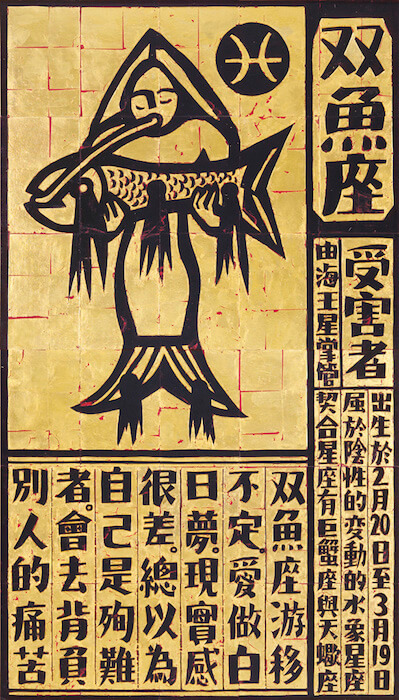 双魚座
受害者
由海王星掌管
出生於2月20日至3月19日
属於陰性的変動的水象星座
契合星座有巨蟹座與天蠍座
双魚座游移
不定。愛做白
日夢。現實感
很差。總以為
自己是殉難
者。會去背負
別人的痛苦